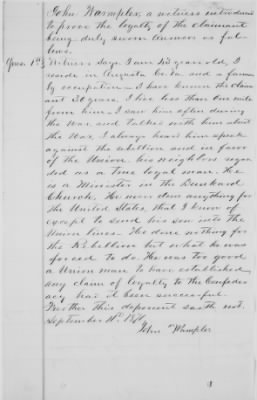 John Wampler, a witness introduced
to prove the loyalty of the claimant
being duly sworn answers as fol-
lows.
Ques. 1st Witness says I am years old, I
reside in Augusta Co. Va and a farmer
by occupation - I have known the claim
ant 30 years. I live less than one mile
from him - I saw him often during
the War and talked with him about
the War, I always heard him speak
against the rebellion and in favor
of the Union. his neighbors regar
ded as a true loyal man. He
is a Minister in the Dunkard
Church. He never done anything for
the United States, that I know of
except to send his son into the
Union lines. He done nothing for
the Rebellion but what he was
forced to do. He was too good
a Union man to have established
any claim of loyalty to the Confeder
acy had it been successful.
Further this deponent saith not.
September
John Wampler